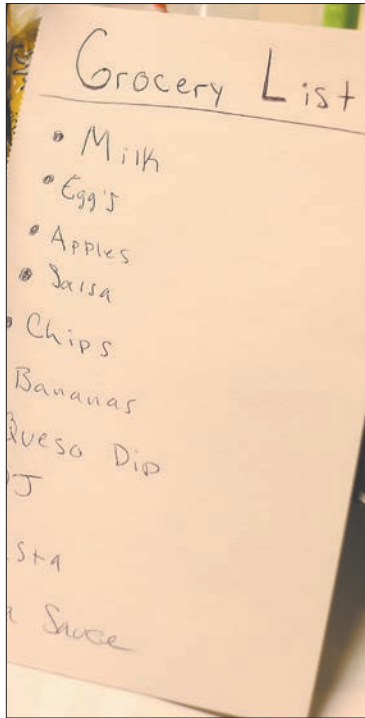 Grocery List
• Milk
• Egg's
• Apples
• Salsa
• Chips
Bananas
Queso Dip
OJ
sta
a Sauce